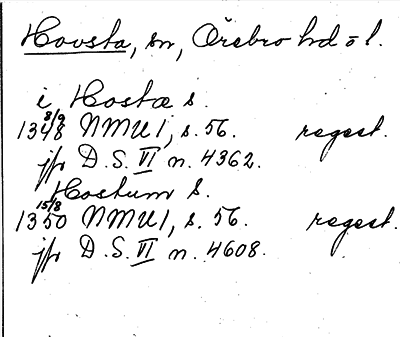 Hovsta, sn, Örebro hd o l.
i Hostæ s.
1348 8/9 NMU I, s. 56. regest.
jfr D.S. VI n. 4362.
Hostum s.
1350 15/8 NMU I, s. 56. regest.
jfr D.S. VI n. 4608.